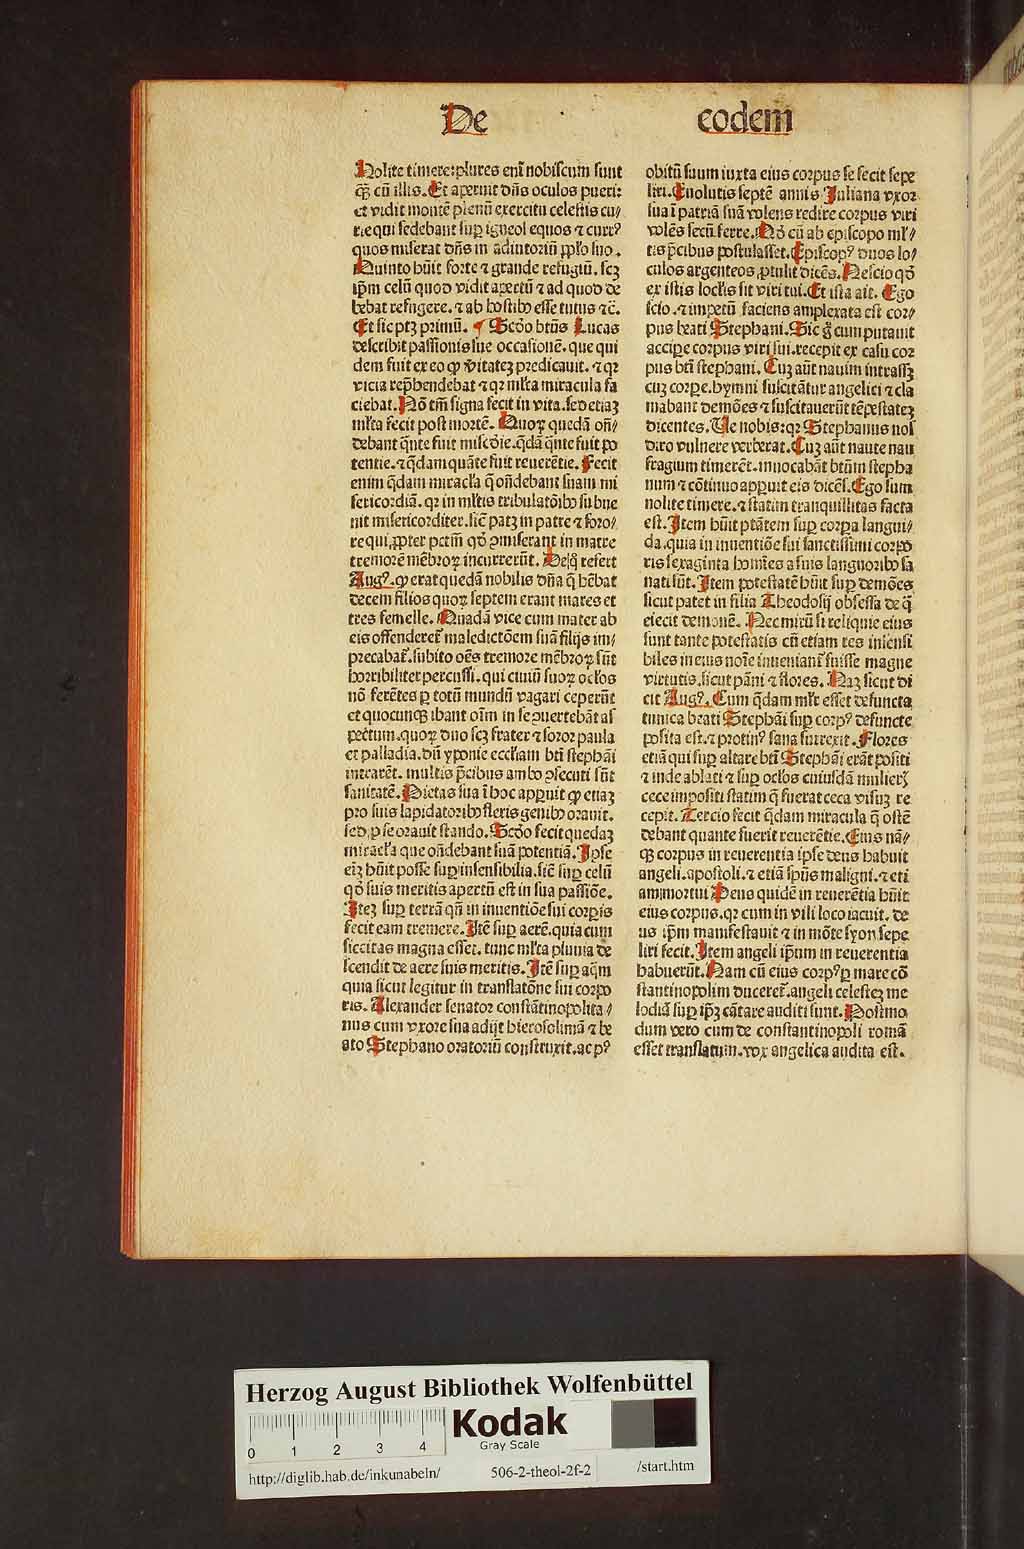 De eodem
Nolite timere: plures enī nobiscum sunt
qȝ cū illis. Et aperuit dn̄s oculos pueri:
et vidit montē plenū exercitu celestis cu/
rie qui sedebant sup̱ igneos equos ⁊ currꝰ
quos miserat dn̄s in adiutoriū pp̄lo suo.
Quinto hūit forte ⁊ grande refugiū. scȝ
ip̄m celū quod vidit apertū ⁊ ad quod de
bebat refugere. ⁊ ab hostibꝰ esse tutus ⁊c̄.
Et sic ptȝ primū. ¶ Scd̄o btūs Lucas
describit passionis sue occasionē. que qui
dem fuit ex eo ꝙ v̄itateȝ predicauit. ⁊ qꝛ
vicia rep̄hendebat ⁊ qꝛ ml̄ta miracula fa
ciebat. Nō tm̄ signa fecit in vita. sed etiaȝ
ml̄ta fecit post mortē. Quoꝝ quedā on̄/
debant q̄nte fuit mīscd̄ie. q̄dā q̄nte fuit po
tentie. ⁊ q̄dam quāte fuit reuerētie. Fecit
enim q̄dam miracl̄a q̄ on̄debant suam mi
sericordiā. qꝛ in ml̄tis tribulatōibꝰ subue
nit misericorditer. sic̄ patȝ in patre ⁊ soro/
re qui ꝓpter pctm̄ qd̄ ꝯmiserant in matre
tremorē mēbroꝝ incurrerūt. Deqͥ refert
Augꝰ. ꝙ erat quedā nobilis dn̄a q̄ hēbat
decem filios quoꝝ septem erant mares et
tres femelle. Quadā vice cum mater ab
eis offenderet̄ maledictōem suā filijs im/
precabat̄. subito oēs tremore mēbroꝝ sūt
horribiliter percussi. qui ciuiū suoꝝ ocl̄os
nō ferētes ꝑ totū mundū vagari ceperūt
et quocunqȝ ibant oīm in se ꝯuertebāt as
pectum. quoꝝ duo scȝ frater ⁊ soror paula
et palladia. dū yponie eccl̄iam bt̄i stephāi
intrarēt. multis p̄cibus ambo ꝯsecuti sūt
sanitatē. Pietas sua ī hoc apꝑuit ꝙ etiaȝ
pro suis lapidatoribꝰ flexis genibꝰ orauit.
sed ꝓ se orauit stando. Scd̄o fecit quedaȝ
miracl̄a que on̄debant suā potentiā. Ipse
eīȝ hūit posse sup̱ insensibilia. sic̄ sup̱ celū
qd̄ suis meritis apertū est in sua passiōe.
Iteȝ sup̱ terrā qn̄ in inuentiōe sui corꝑis
fecit eam tremere. Itē sup̱ aerē. quia cum
siccitas magna esset. tunc ml̄ta pluuia de
scendit de aere suis meritis. Itē sup̱ aq̄m
quia sicut legitur in translatōne sui corpo
ris. Alexander senator constātinopolita/
nus cum vxore sua adijt hierosolimā ⁊ be
ato Stephano oratoriū construxit. ac pꝰ
obitū suum iuxta eius corpus se fecit sepe
liri. Euolutis septē annis Iuliana vxor
sua ī patriā suā volens redire corpus viri
volēs secū ferre. Nō cū ab episcopo ml̄/
tis p̄cibus postulasset. Episcopꝰ duos lo/
culos argenteos ꝓtulit dicēs. Nescio qd̄
ex istis locl̄is sit viri tui. Et ista ait. Ego
scio. ⁊ impetū faciens amplexata est cor/
pus beati Stephani. Sic g̊ cum putauit
accipe corpus viri sui. recepit ex casu cor
pus bt̄i stephani. Cuȝ aūt nauim intrasȝ
cuȝ corꝑe. hymni suscitātur angelici ⁊ cla
mabant demōes ⁊ suscitauerūt tēpestateȝ
dicentes. Ve nobis: qꝛ Stephanus nos
diro vulnere verberat. Cuȝ aūt naute nau
fragium timerēt. inuocabāt btūm stepha
num ⁊ cōtinuo apꝑuit eis dicēs. Ego sum
nolite timere. ⁊ statim tranquillitas facta
est. Item hūit ptātem sup̱ corpa langui/
da. quia in inuentiōe sui sanctissimi corpo
ris sexaginta hoīnes a suis languoribꝰ sa
nati sūt. Item potestatē hūit sup̱ demōes
sicut patet in filia Theodosij obsessa de q̄
eiecit demonē. Nec mirū si reliquie eius
sunt tante potestatis cū etiam res insensi
biles in eius noīe inueniant̄ fuisse magne
virtutis. sicut pāni ⁊ flores. Naȝ sicut di
cit Augꝰ. Cum q̄dam ml̄r esset defuncta
tunica beati Stephāi sup̱ corpꝰ defuncte
posita est. ⁊ protinꝰ sana surrexit. Flores
etiā qui sup̱ altare bt̄i Stephāi erāt positi
⁊ inde ablati ⁊ sup̱ ocl̄os cuiusdā mulierȝ
cece impositi statim q̄ fuerat ceca visuȝ re
cepit. Tercio fecit q̄dam miracula q̄ ostē
debant quante fuerit reuerētie. Eius nā/
qȝ corpus in reuerentia ipse deus habuit
angeli. apostoli. ⁊ etiā sp̄us maligni. ⁊ eti
am mortui Deus quidē in reuerētia hūit
eius corpus. qꝛ cum in vili loco iacuit. de
us ip̄m manifestauit ⁊ in mōte syon sepe
liri fecit. Item angeli ip̄um in reuerentia
habuerūt. Nam cū eius corpꝰ ꝑ mare cō
stantinopolim duceret̄. angeli celesteȝ me
lodiā sup̱ ip̄ȝ cātare auditi sunt. Postmo
dum vero cum de constantinopoli romā
esset translatum. vox angelica audita est.
Herzog August Bibliothek Wolfenbüttel
0 1 2 3 4
Kodak
Gray Scale
http://diglib.hab.de/inkunabeln/ 506-2-theol-2f-2 /start.htm